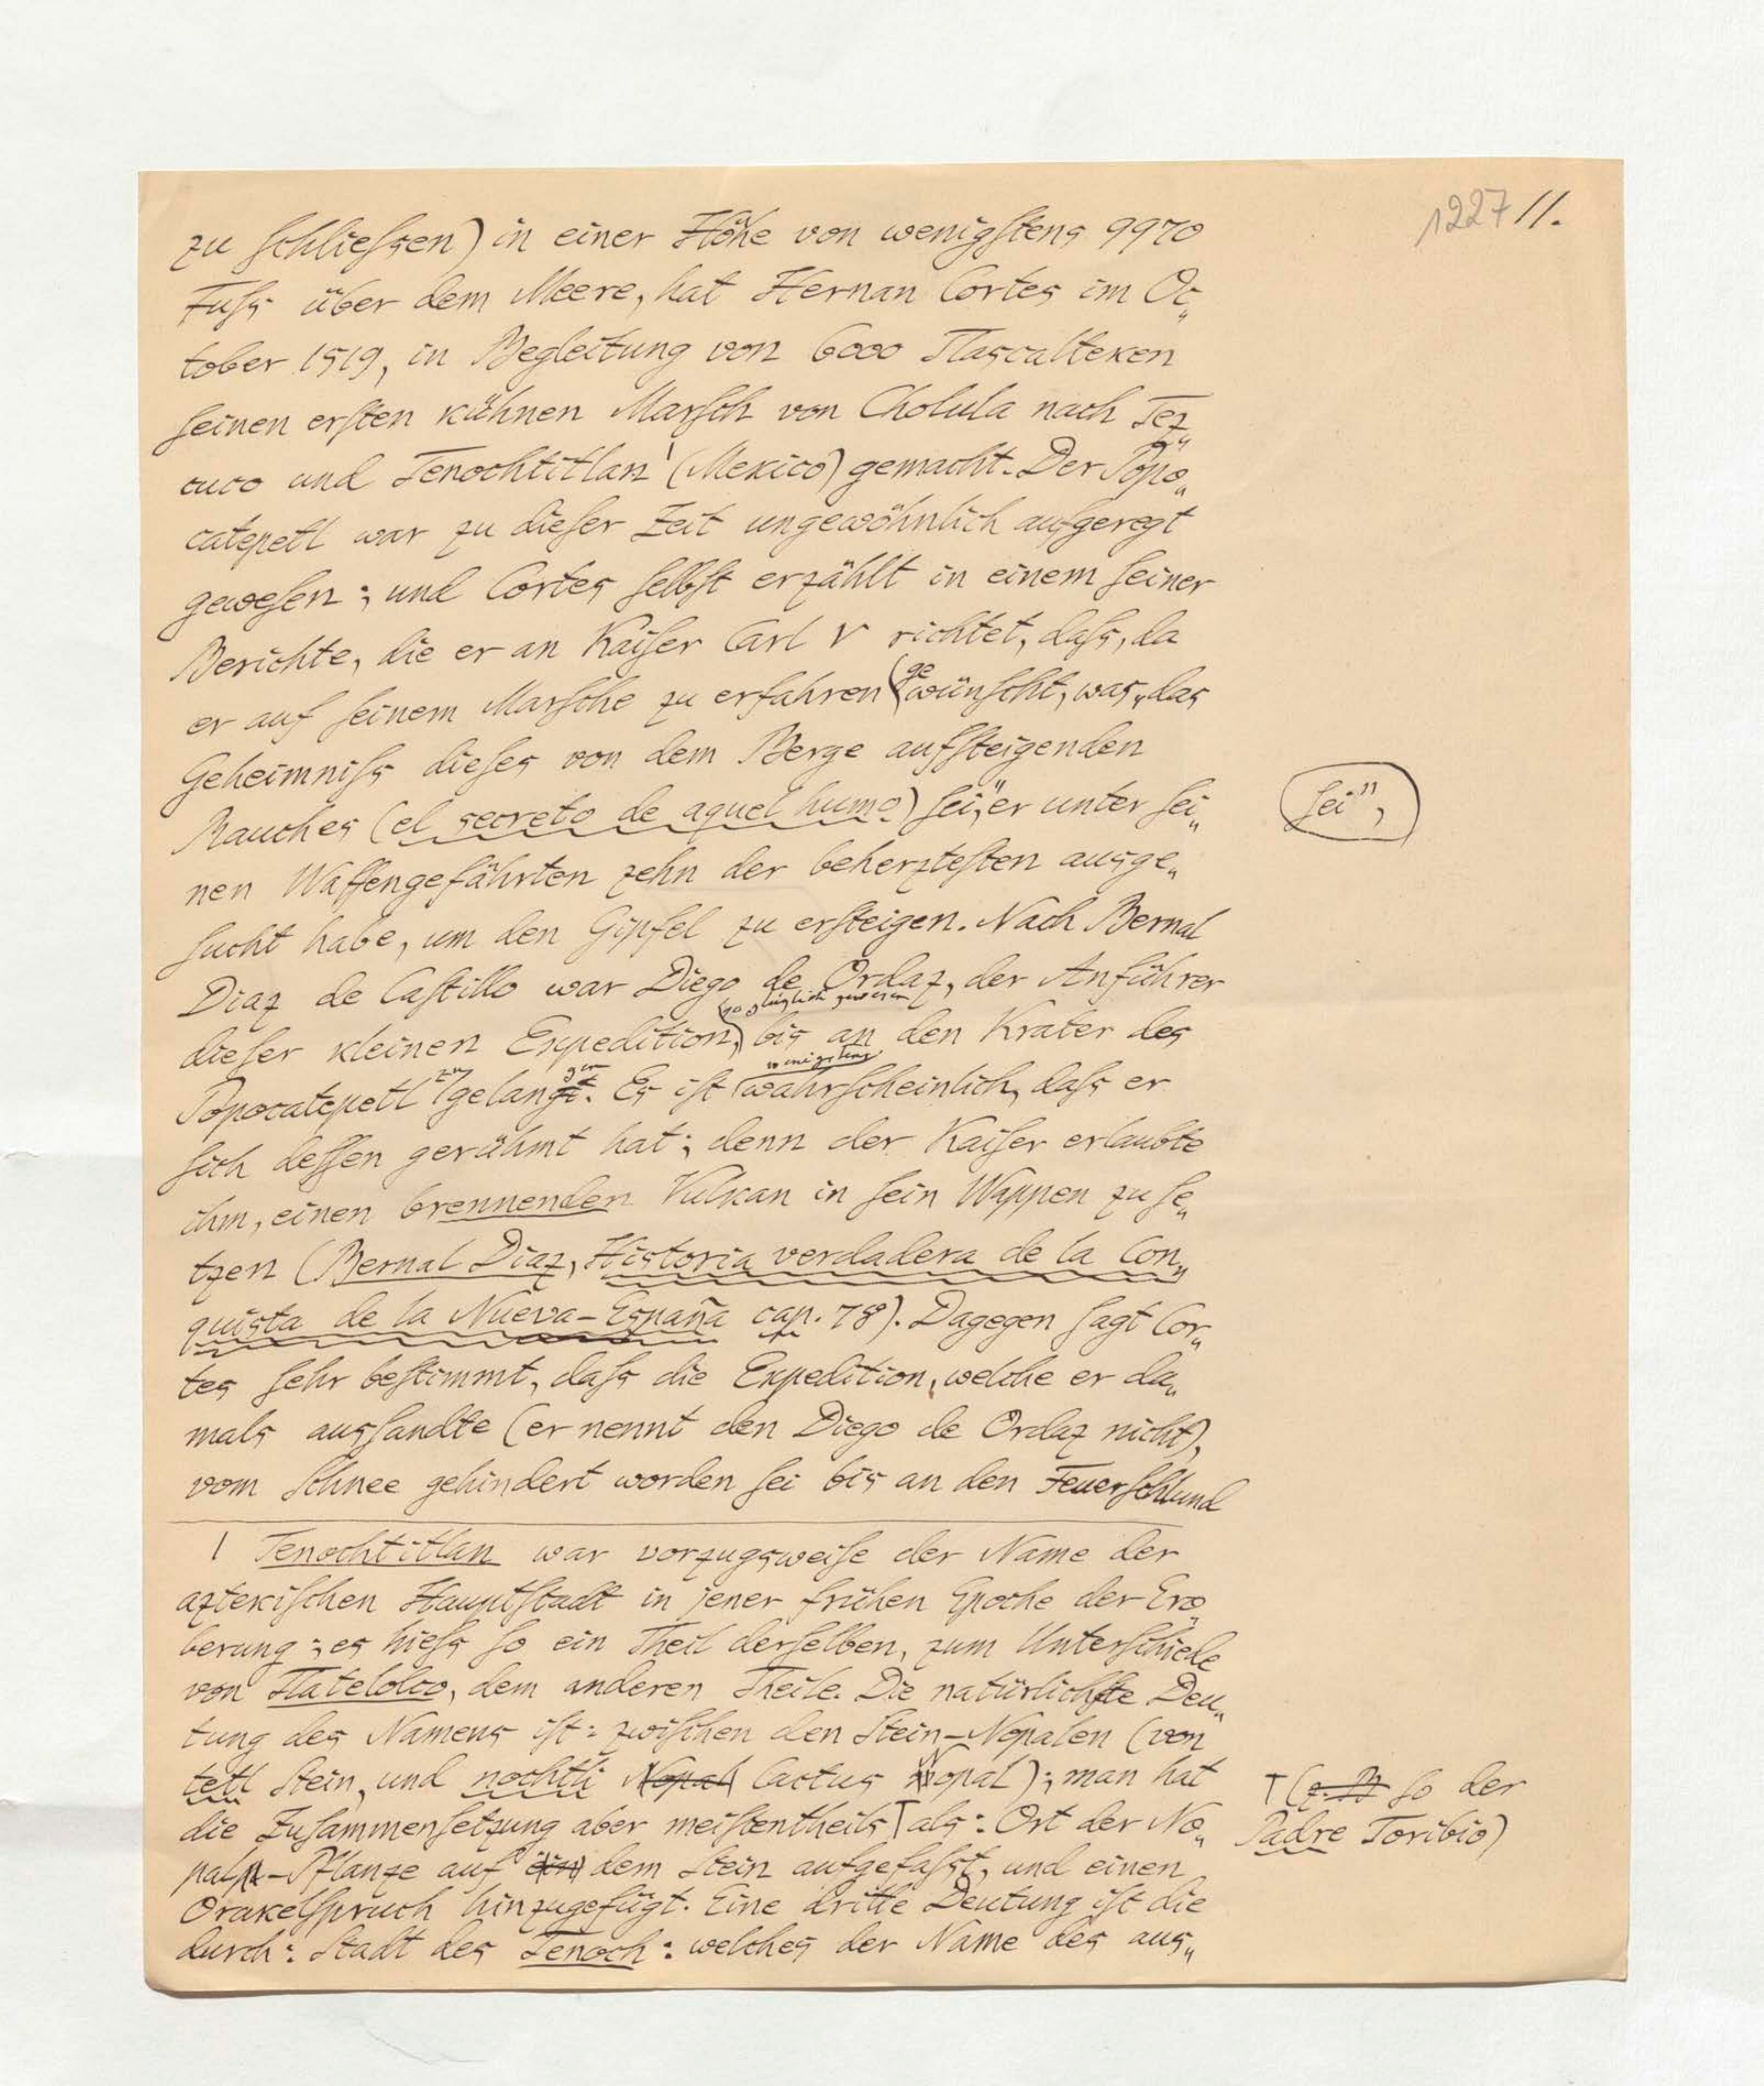 1227 11.
zu schliessen) in einer Höhe von wenigstens 9970
Fuss über dem Meere, hat Hernan Cortes im Oc„
tober 1519, in Begleitung von 6000 Tlascalteken
seinen ersten kühnen Marsch von Cholula nach Tez„
cuco und Tenochtitlan¹ (Mexico) gemacht. Der Popo„
catepetl war zu dieser Zeit ungewöhnlich aufgeregt
gewesen; und Cortes selbst erzählt in einem seiner
Berichte, die er an Kaiser Carl V richtet, dass, da
er auf seinem Marsche zu erfahren gewünscht, was „das
Geheimniss dieses von dem Berge aufsteigenden
Rauches (el secreto de aquel humo) sei", er unter sei„
sei",
nen Waffengefährten zehn der beherztesten ausge„
sucht habe, um den Gipfel zu ersteigen. Nach Bernal
Diaz de Castillo war Diego de Ordaz, der Anführer
so glüglich gewesen
dieser kleinen Expedition, bis an den Krater des
wenigstens
Popocatepetl zu gelangen. Es ist wahrscheinlich, dass er
sich dessen gerühmt hat; denn der Kaiser erlaubte
ihm, einen brennenden Vulkan in sein Wappen zu se„
tzen (Bernal Diaz, Historia verdadera de la Con„
quista de la Nueva-España cap. 78). Dagegen sagt Cor„
tes sehr bestimmt, dass die Expedition, welche er da„
mals aussandte (er nennt den Diego de Ordaz nicht),
vom Schnee gehindert worden sei bis an den Feuerschlund
1 Tenochtitlan war vorzugsweise der Name der
aztekischen Hauptstadt in jener frühen Epoche der Ero„
berung; es hiess so ein Theil derselben, zum Unterschiede
von Tlatelolco, dem anderen Theile. Die natürlichste Deu„
tung des Namens ist: zwischen den Stein-Nopalen (von
tetl Stein, und nochtli Nopal Cactus Nopal); man hat
die Zusammensetzung aber meistentheils ⊤ als: Ort der No„
⊤ (z. B. so der
Padre Toribio)
pal-Pflanze auf ein dem Stein aufgefasst, und einen
Orakelspruch hinzugefügt. Eine dritte Deutung ist die
durch: Stadt des Tenoch: welches der Name des aus„